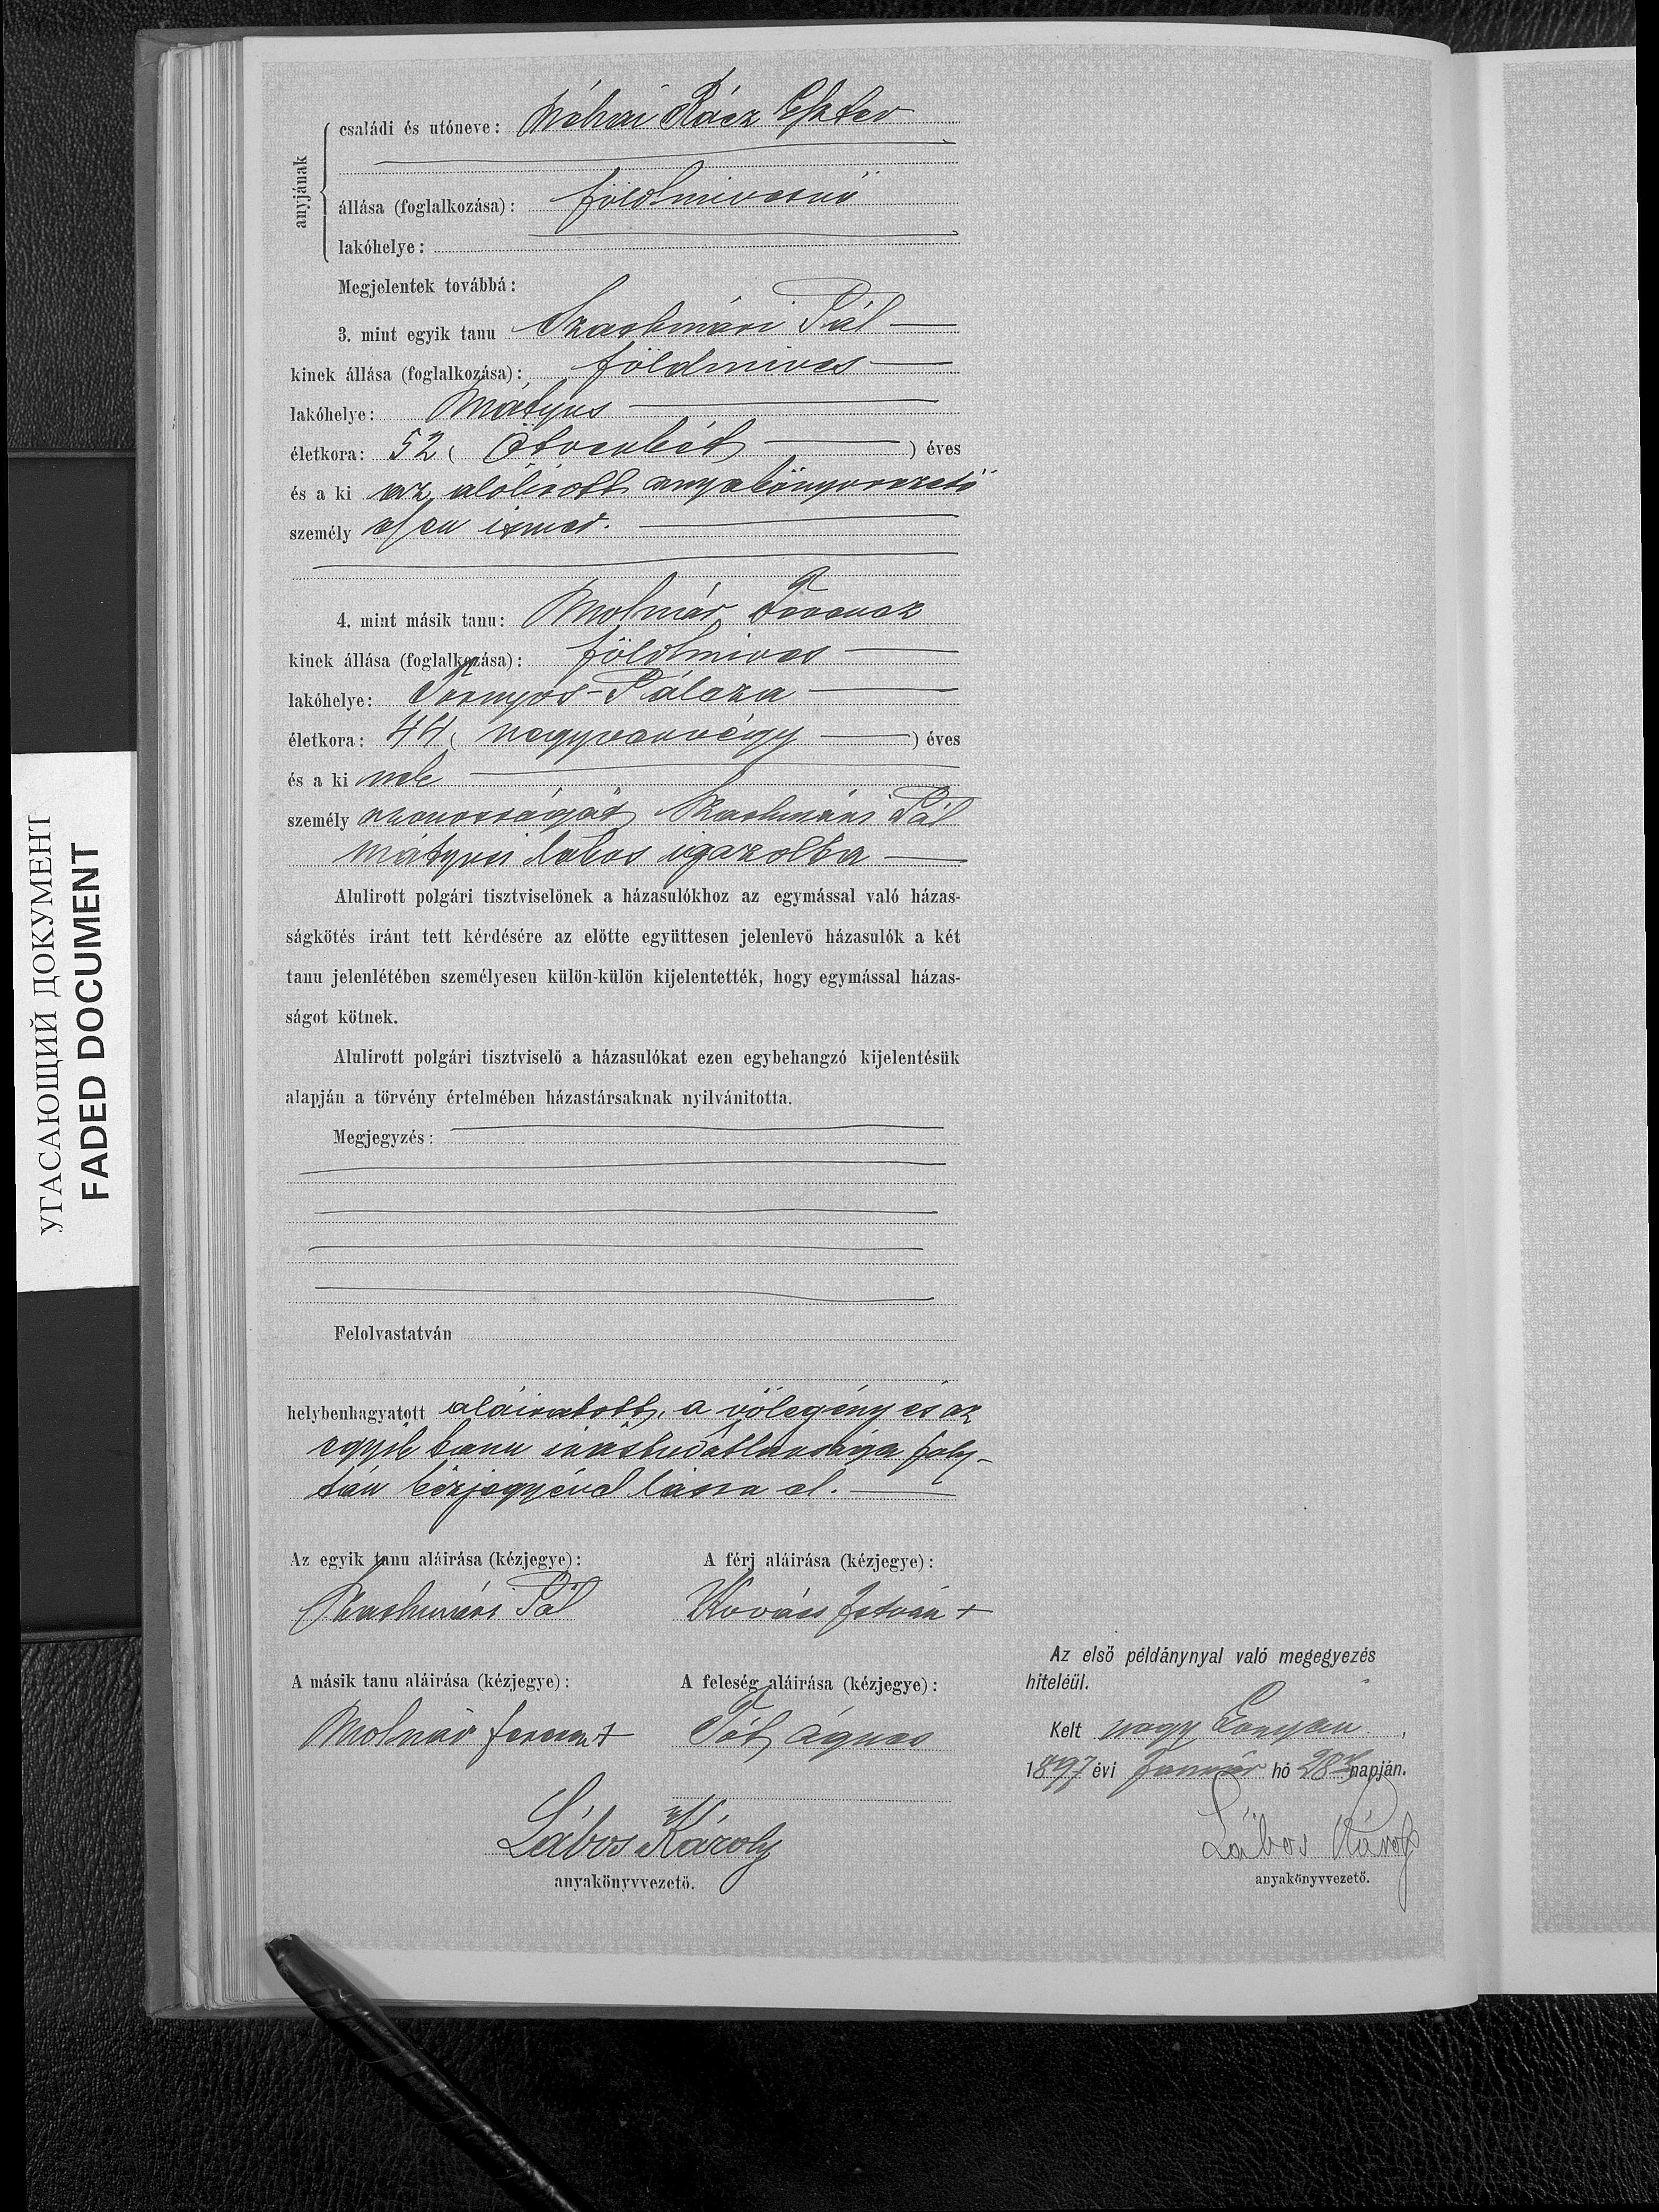 anyjának
családi és utóneve: Néhai Rácz Eszter
állása (foglalkozása): földmivesnő
lakóhelye:
Megjelentek továbbá:
3. mint egyik tanu Szathmári Pál
kinek állása (foglalkozása): földmives
lakóhelye: Mátyus
életkora: 52 ( Ötvenkét ) éves
és a ki az alólirott anyakönyvvezető
személyesen ismer.
4. mint másik tanu: Molnár Ferencz
kinek állása (foglalkozása): földmives
lakóhelye: Tornyos-Pálcza
életkora: 44 ( negyvennégy ) éves
és a ki nek
személy azonosságát Szathmári Pál
mátyusi lakos igazolta
Alulirott polgári tisztviselönek a házasulókhoz az egymással való házas-
ságkötés iránt tett kérdésére az elötte együttesen jelenlevö házasulók a két
tanu jelenlétében személyesen külön-külön kijelentették, hogy egymással házas-
ságot kötnek.
Alulirott polgári tisztviselö a házasulókat ezen egybehangzó kijelentésük
alapján a törvény értelmében házastársaknak nyilvánitotta.
Megjegyzés:
Felolvastatván
helybenhagyatott aláiratott, a vőlegény és az
egyik tanu irástudatlansága foly-
tán kézjegyével látta el.
Az egyik tanu aláirása (kézjegye): A férj aláirása (kézjegye):
Szathmári Pál Kovács István +
A másik tanu aláirása (kézjegye): A feleség aláirása (kézjegye):
Molnár ferencz + Tót Ágnes
Lábos Károly
anyakönyvvezetö.
Az elsö példánynyal való megegyezés
hiteléül.
Kelt nagy Lónyán,
1897 évi Január hó 28 napján.
Lábos Károly
anyakönyvvezetö.
УГАСАЮЩИЙ ДОКУМЕНТ
FADED DOCUMENT